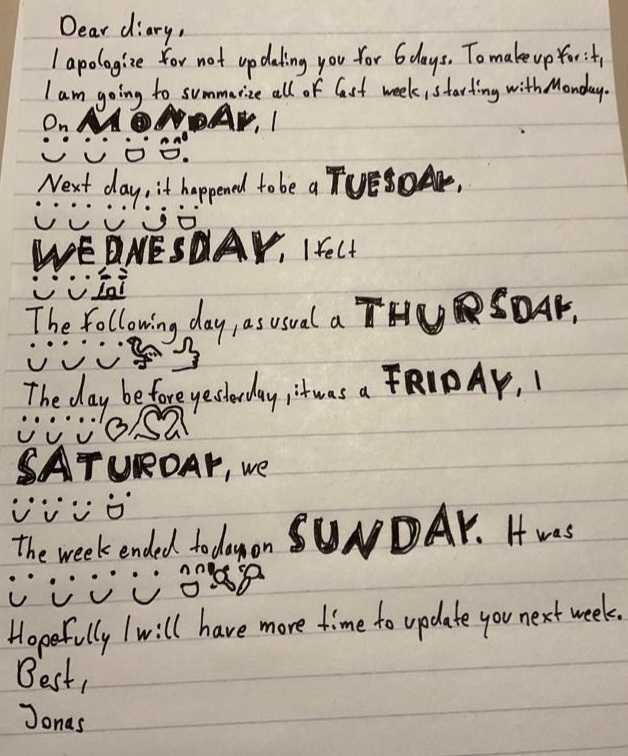 Dear diary,
I apologize for not updating you for 6 days. To make up for it,
I am going to summarize all of last week, starting with Monday.
On MONDAY, I
Next day, it happened to be a TUESDAY,
WEDNESDAY, I felt
The following day, as usual a THURSDAY,
The day before yesterday, it was a FRIDAY, I
SATURDAY, we
The week ended today on SUNDAY. It was
Hopefully I will have more time to update you next week.
Best,
Jonas